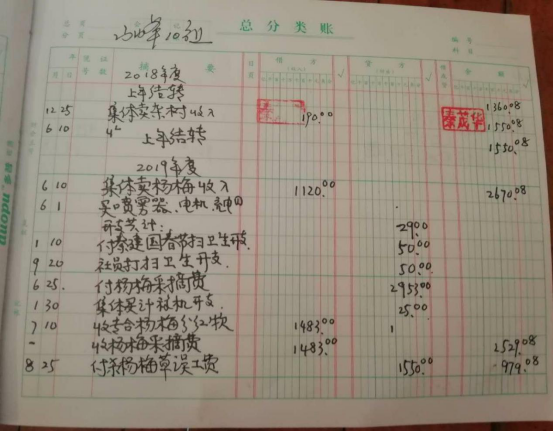 总分类账
年 凭证 摘要 借方 贷方 余额
月 日 号数
2018年度
上年结转 1360.08
12 25 集体卖杂树收入 190.00 1550.08
6 10 上年结转 1550.08
2019年度
6 10 集体卖杨梅收入 1120.00 2670.08
6 1 买喷雾器、电机
开支共计: 29.00
1 10 付秦建国春节扫卫生开支 50.00
9 20 社员打扫卫生开支. 50.00
6 25. 付杨梅采摘费 2953.00
1 30 集体买计算机开支. 25.00
7 10 收专合杨梅分红款 1483.00
收杨梅采摘费 1483.00 2529.08
8 25 付杀杨梅草误工费 1550.00 979.08
秦茂华